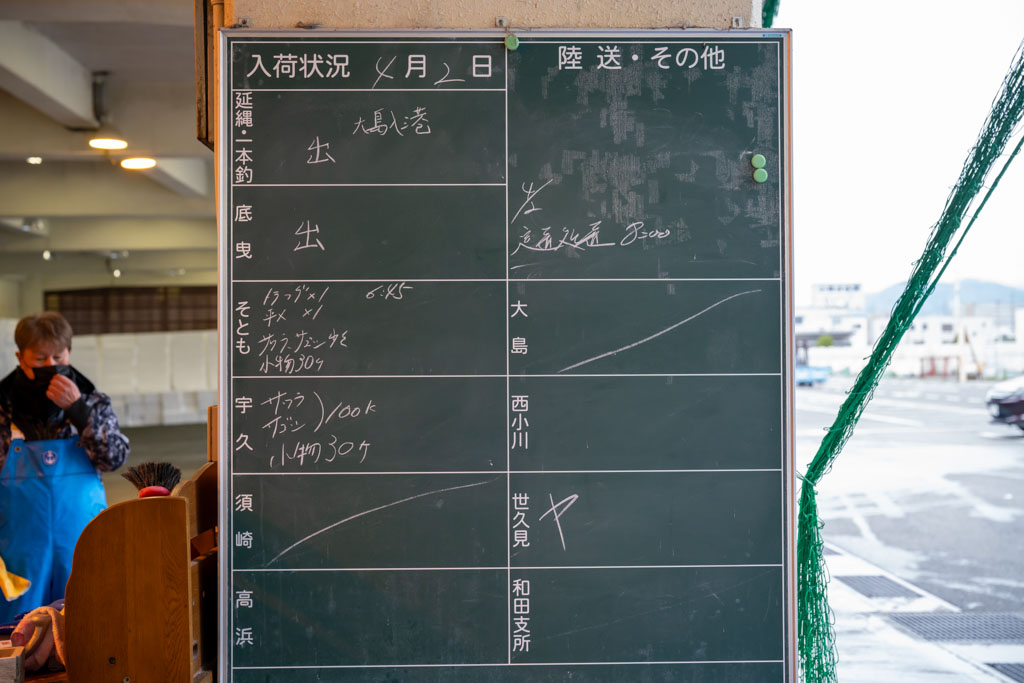 入荷状況 4月2日
延縄・一本釣
大島入港
出
底曳
出
そとも
トラフグ×1 6:45
平メ ×1
サワラ、サゴシ
小物30ケ
宇久
サワラ
サゴシ
100k
小物30ケ
須崎
高浜
陸送・その他
8:00
大島
西小川
世久見
ヤ
和田支所